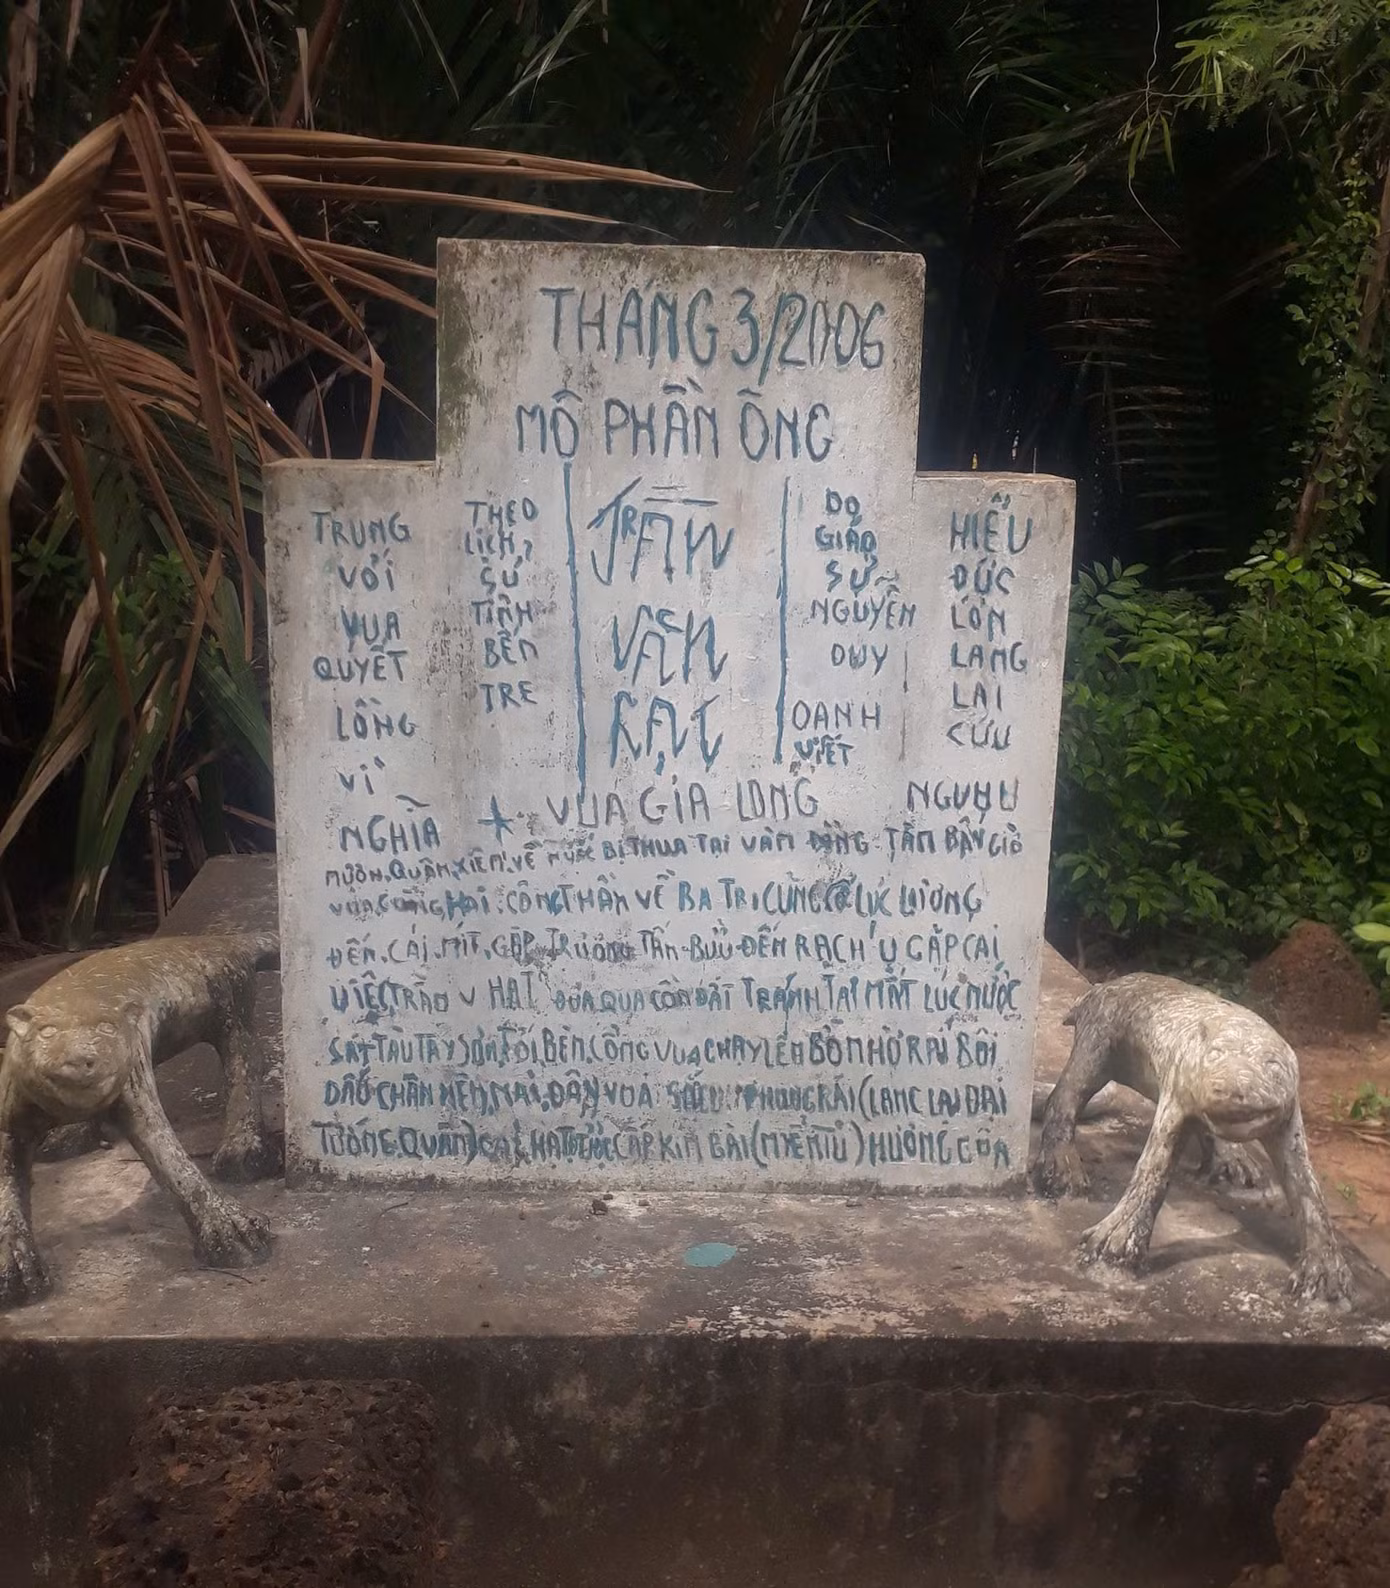 THÁNG 3/2006
MỘ PHẦN ÔNG
TRUNG
VỚI
VUA
QUYẾT
LÒNG
VÌ
NGHĨA
THEO
LỊCH
SỬ
TỈNH
BẾN
TRE
TRẦN
VĂN
RẠC
DO
GIÁO
SƯ
NGUYỄN
DUY
OANH
VIẾT
HIẾU
ĐỨC
LÒN
LANG
LAI
CỨU
NGUYU
VUA GIA LONG
MƯỢN QUÂN XIÊM VỀ NƯỚC BỊ THUA TẠI VÀM TẦN BÂY GIỜ
VUA CÙNG HAI CÔNG THẦN VỀ BA TRI CÙNG LỰC LƯỢNG
ĐẾN CÁI MÍT GẶP TRƯƠNG TẤN BỬU ĐẾN RẠCH Ụ GẶP CAI
VIỆC TRẦN V HẠT ĐƯA QUA CỒN ĐẤT TRÁNH TAI MẮT LÚC NƯỚC
SÁT TÀU TÂY SƠN TỚI BÊN CỒNG VUA CHẠY LÊN BỒN HỜ RÁI BÔI
DẤU CHÂN NÊN MAI VUA PHONG RÁI (LANG LẠI ĐẠI
TƯỚNG QUÂN) CAI HẠT ĐƯỢC CẤP KIM BÀI (MYÊN TỬ) HƯƠNG